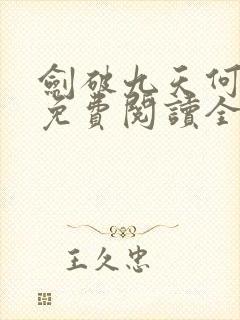 劍破九天何
免費閱讀全
王久忠